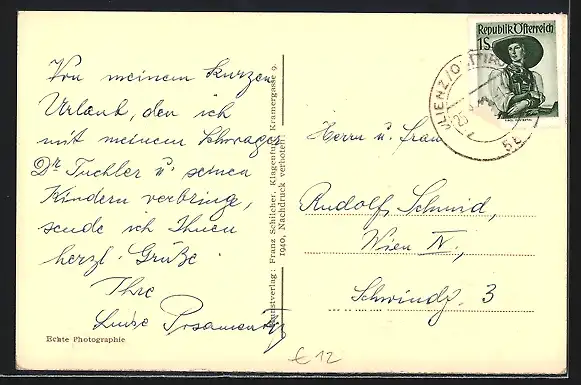 Von meinem kurzen
Urlaub, den ich
mit meinem Schwager
Dr Tuchler u. seinen
Kindern verbringe,
sende ich Ihnen
herzl. Grüße
Ihre
Luise
Echte Photographie
Kunstverlag: Franz Schilcher, Klagenfurt, Kramergasse 9.
1940, Nachdruck verboten!
Republik Österreich
1S
LIENZ
5b
Herrn u. Frau
Rudolf Schmid,
Wien IV.,
Schwindg. 3
€ 12